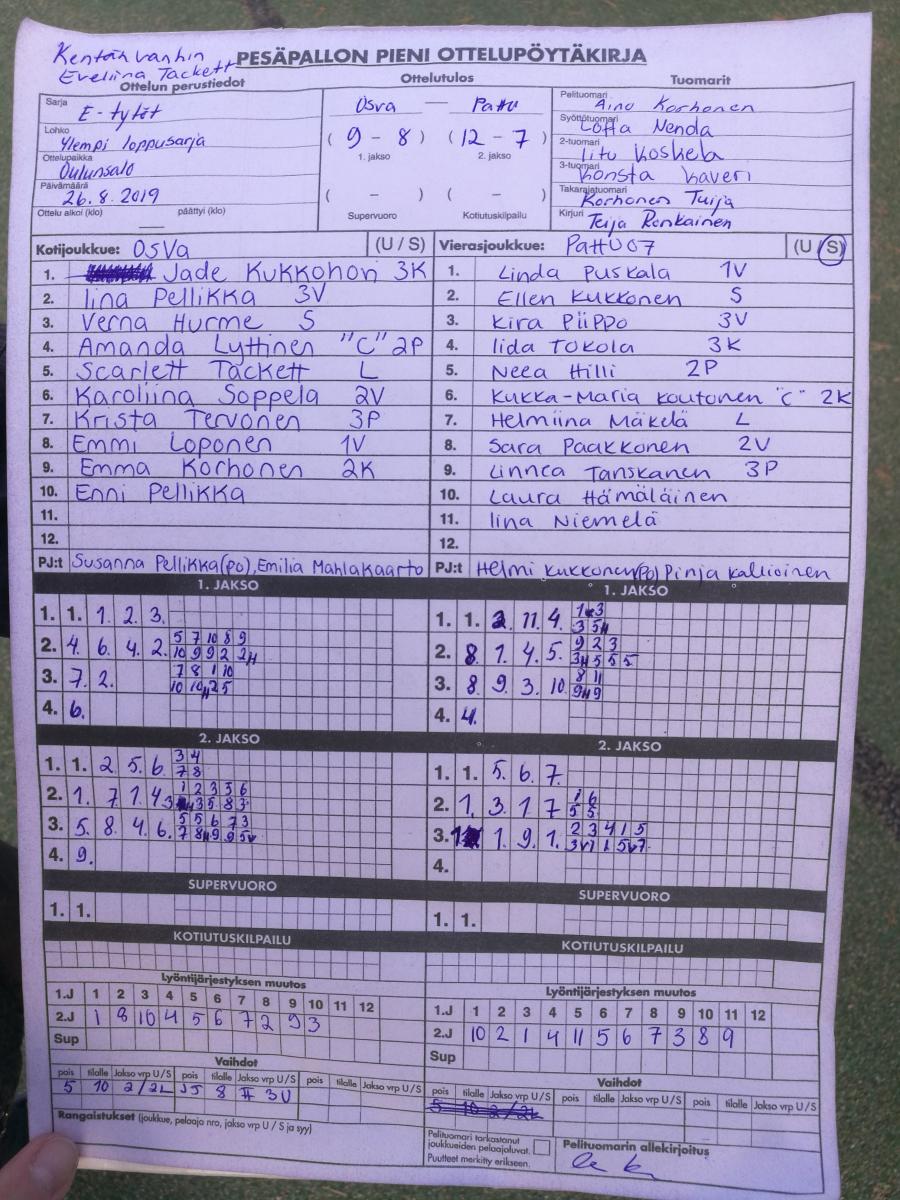 Kentän vanhin
Eveliina Tackett
PESÄPALLON PIENI OTTELUPÖYTÄKIRJA
Ottelun perustiedot
Sarja
E-tytöt
Lohko
Ylempi loppusarja
Ottelupaikka
Oulunsalo
Päivämäärä
26.8.2019
Ottelu alkoi (klo) päättyi (klo)
Ottelutulos
Osva — Pattu
( 9 - 8 ) ( 12 - 7 )
1. jakso 2. jakso
( - ) ( - )
Supervuoro Kotiutuskilpailu
Tuomarit
Pelituomari
Aino Korhonen
Syöttötuomari
Lotta Nenda
2-tuomari
Iitu Koskela
3-tuomari
Konsta Kaveri
Takarajatuomari
Korhonen Tuija
Kirjuri
Teija Ronkainen
Kotijoukkue: OSVa (U / S)
1. Jade Kukkohon 3K
2. Iina Pellikka 3V
3. Verna Hurme S
4. Amanda Lyttinen "C" 2P
5. Scarlett Tackett L
6. Karoliina Soppela 2V
7. Krista Tervonen 3P
8. Emmi Loponen 1V
9. Emma Korhonen 2K
10. Enni Pellikka
11.
12.
PJ:t Susanna Pellikka(po), Emilia Mahlakaarto
Vierasjoukkue: PattU07 (U / S)
1. Linda Puskala 1V
2. Ellen Kukkonen S
3. Kira Piippo 3V
4. Iida Tokola 3K
5. Neea Hilli 2P
6. Kukka-Maria Koutonen "C" 2K
7. Helmiina Mäkelä L
8. Sara Paakkonen 2V
9. Linnea Tanskanen 3P
10. Laura Hämäläinen
11. Iina Niemelä
12.
PJ:t Helmi Kukkonen(po) Pinja Kallioinen
1. JAKSO
1. 1. 1. 2. 3.
2. 4. 6. 4. 2. 5 7 10 8 9
10 9 9 2 2H
3. 7. 2. 7 8 1 10
10 10H 2 5
4. 6.
1. JAKSO
1. 1. 2. 11. 4. 1 3
3 5H
2. 8. 1. 4. 5. 9 2 3
3H 5 5 5
3. 8. 9. 3. 10. 8 11
9H 9
4. 4.
2. JAKSO
1. 1. 2 5. 6. 3 4
7 8
2. 1. 7 1. 4. 1 2 3 5 6
3 5 8 3
3. 5. 8 4. 6. 5 5 6 7 3
7 8H 9 9 5
4. 9.
2. JAKSO
1. 1. 5. 6. 7.
2. 1. 3. 1 7 1 6
5 5
3. 1. 9. 1. 2 3 4 1 5
4.
SUPERVUORO
1. 1.
SUPERVUORO
1. 1.
KOTIUTUSKILPAILU
KOTIUTUSKILPAILU
Lyöntijärjestyksen muutos
1.J 1 2 3 4 5 6 7 8 9 10 11 12
2.J 1 8 10 4 5 6 7 2 9 3
Sup
Lyöntijärjestyksen muutos
1.J 1 2 3 4 5 6 7 8 9 10 11 12
2.J 10 2 1 4 11 5 6 7 3 8 9
Sup
Vaihdot
pois tilalle Jakso vrp U/S pois tilalle Jakso vrp U/S pois tilalle Jakso vrp U/S
5 10 2/2L 8 II 3U
Rangaistukset (joukkue, pelaaja nro, jakso vrp U / S ja syy)
Vaihdot
pois tilalle Jakso vrp U/S pois tilalle Jakso vrp U/S pois tilalle Jakso vrp U/S
5 10 2/2L
Pelituomari tarkastanut
joukkueiden pelaajaluvat.
Puutteet merkitty erikseen.
Pelituomarin allekirjoitus